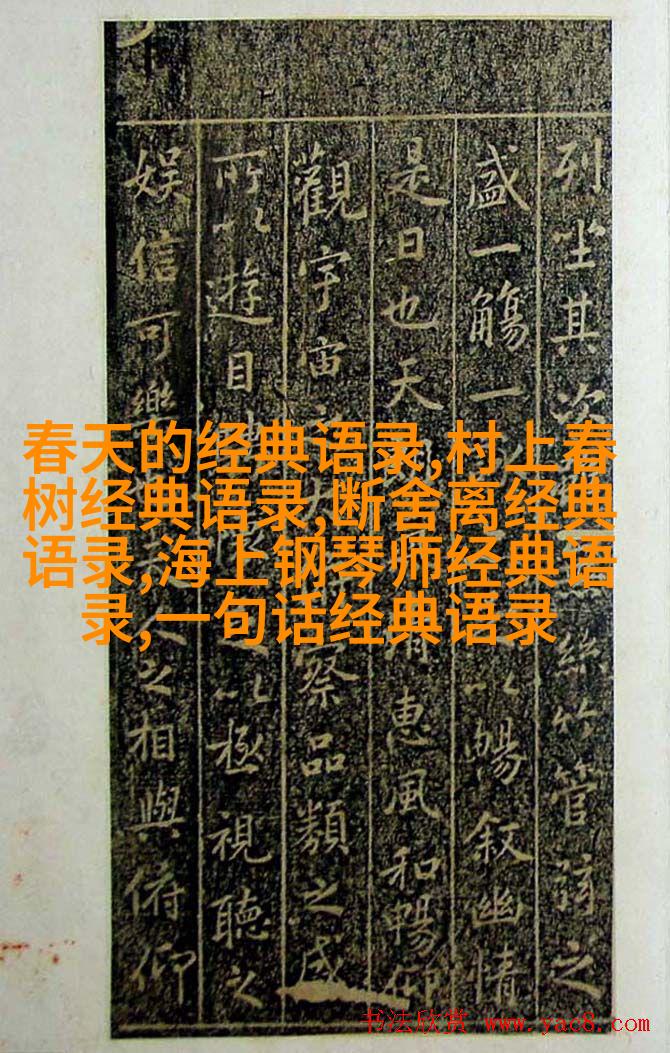 列坐其次絲竹管弦之
盛一觴一以暢叙幽情
是日也天朗清惠風和暢仰
觀宇宙之察品類之盛
所以遊目以極視聽之
娛信可樂夫人之相與俯仰
春天的经典语录,村上春
树经典语录,断舍离经典
语录,海上钢琴师经典语
录,一句话经典语录
书法欣赏 www.yac8.com